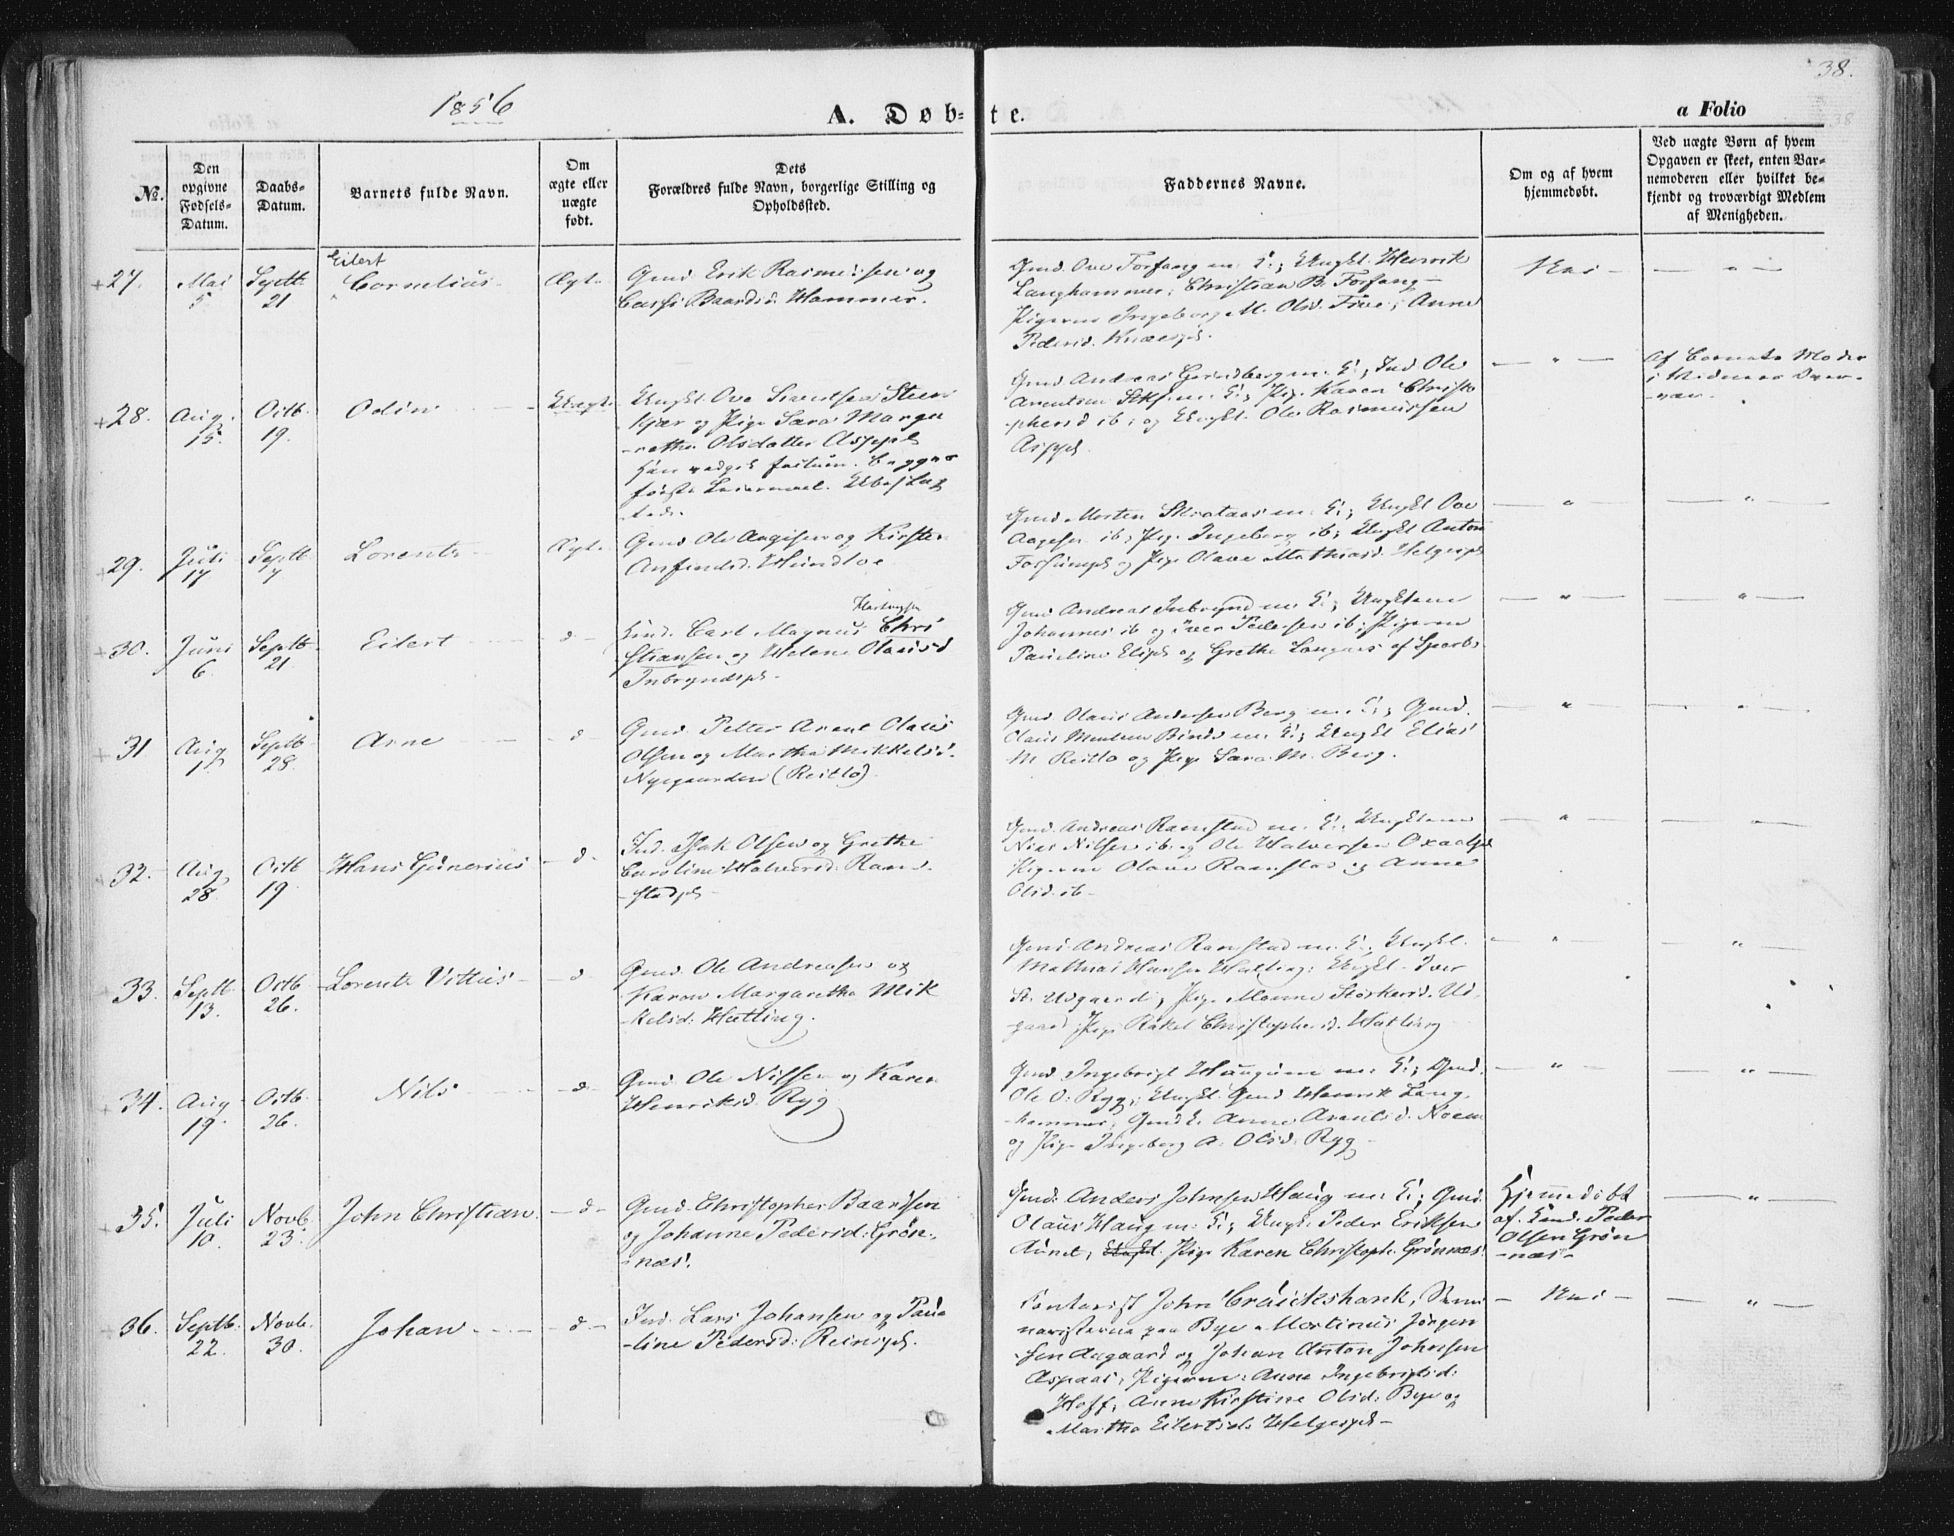 38.
1856
A. Døb-
te.
a Folio
No.
Den
opgivne
Fødsels-
Datum.
Daabs-
Datum.
Barnets fulde Navn.
Om
ægte eller
uægte
født.
Dets
Forældres fulde Navn, borgerlige Stilling og
Opholdssted.
Faddernes Navne.
Om og af hvem
hjemmedøbt.
Ved uægte Børn af hvem
Opgaven er skeet, enten Bar-
nemoderen eller hvilket be-
kjendt og troværdigt Medlem
af Menigheden.
27.
Mai
5
Septb.
21
Eilert
Cornelius
Ægte
Gmd. Erik Rasmussen og
Baardsd. Hammer.
Gmd. Ove Forfang m. K.; Ungk. Henrik
Langhammer; Christian B. Forfang
Pigerne Ingeborg M. Olsd. ; Anne
Pedersd.
Nei
28.
Aug.
15.
Octb.
19.
Odin
Uægte
Ungk. Ove Sivertsen Steen
kjær og Pige Sara Marga
-retha Olsdatter Asppl.
første Leiermaal.
Gmd Andreas m. K.; Ind Ole
Arentsen m. K.; Pige Karen Christo
phersd ib; og Ungk. Ole Rasmussen
Asppl.
Af Barnets Moder
29.
Juli
17
Septb
7
Lorents
Ægte
Gmd Ole Aagesen og Kirsten
Anfindsd. Hundloe
Gmd. Morten m. K.; Ungk Ove
Aagesen ib; Pige Ingeborg ib; Ungk Anton
og Pige Olave Mathiasd. Helgespl.
30.
Juni
6.
Septb
21
Eilert
d
Hartvigsen
Ind. Carl Magnus Chri
stiansen og Helene Olausd
Inbryndspl.
Gmd Andreas Inbrynd m. K.; Ungkarlene
Johannes ib og Iver Pedersen ib; Pigerne
Pauline og Grethe af Sparbo
31
Aug
1.
Septb
28.
Arne
d
Gmd. Petter Arent Olaus
Olsen og Martha Mikkelsd.
Nygaarden (Reitlo).
Gmd Olaus Andersen Berg m. K.; Gmd.
Olaus m. K.; Ungk Elias
M Reitlo og Pige Sara M. Berg.
32.
Aug
28.
Octb
19.
Hans Gunerius
d
Ind. Isak Olsen og Grethe
Caroline Halvorsd. Ram-
-stadpl.
Gmd. Andreas Ramstad m. K.; Ungkarlene
Nils Nilsen ib. og Ole Halvorsen
Pigerne Olava Ramstad og Anne
Olsd. ib
33.
Septb.
13.
Octb.
26.
Lorents Vittus
d
Gmd. Ole Andreasen og
Karen Margaretha Mik
kelsd. Hatling.
Gmd. Andreas Ramstad m. K.; Ungk.
Mathias Hansen Hatling; Ungk. Iver
St. Udgaard; Pige Storkersd. Ud-
gaard; Pige Rakel Christophersd. Hatling
34.
Aug
19
Octb.
26.
Nils
d
Gmd. Ole Nilsen og Karen
Henriksd. Ryg
Gmd. Ingebrigt Haugum m. K.; Gmd.
Ole O. Ryg; Ungk. Gmd Henrik Lang-
hammer; Gmdk. Anne Arentsd.
og Pige Ingeborg A. Olsd. Ryg
35.
Juli
10.
Novb.
23.
John Christian
d
Gmd. Christopher Baardsen
og Johanne Pedersd. Grøn-
næs.
Gmd. Anders Johnsen Haug m. K.; Gmd.
Olaus Haug m. K.; Ungk. Peder Eriksen
Aunet; Pige Karen Christoph. Grønnæs
Hjemmedøbt
af Gmd. Peder
Olsen Grøn
-næs
36.
Septb.
22.
Novb.
30.
Johan
d
Ind. Lars Johansen og Pau
-line Pedersd. Reinspl.
John Cruickshank, Semi
naristerne paa Bye Martinus Jørgen
sen Aagaard og Johan Anton Johnsen
Aspaas; Pigerne: Anne Ingebrigtsd.
Hoff; Anne Kirstine Olsd. Bye og
Martha Eilertsd. Helgespl.
Nei